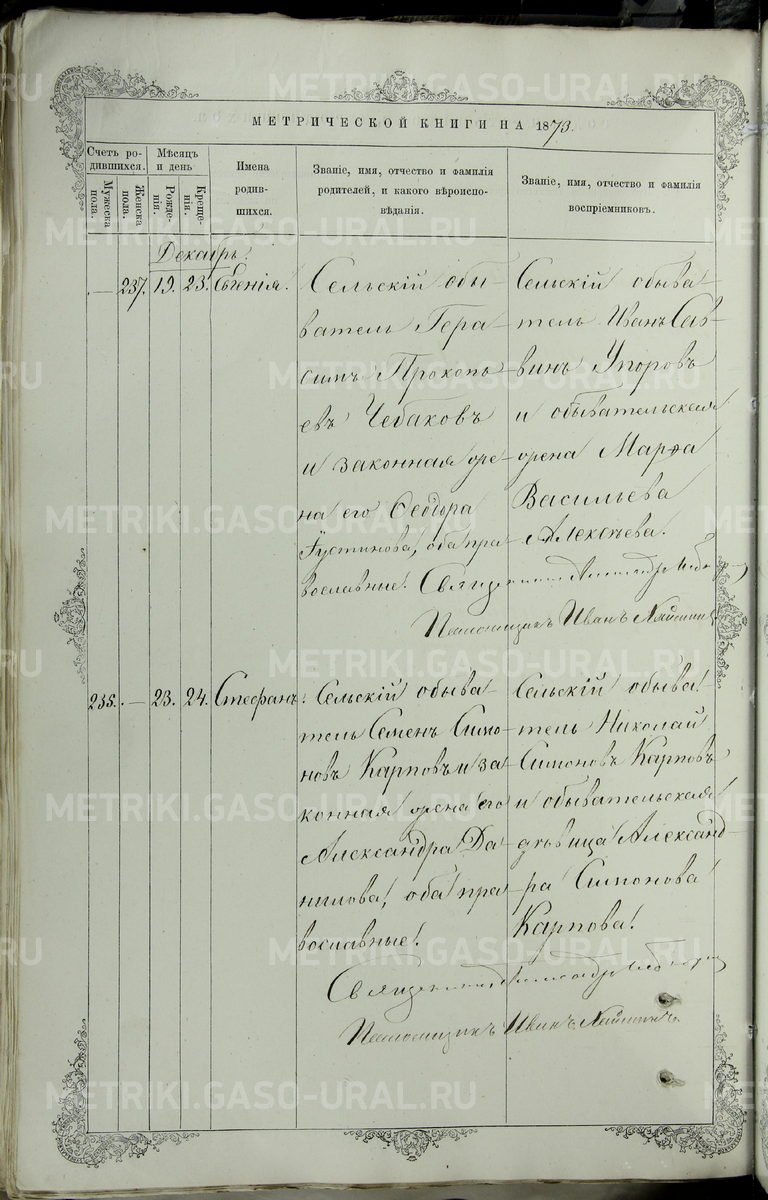 МЕТРИЧЕСКОЙ КНИГИ НА 1873.
Счетъ ро-
дившихся.
Мужеска
пола.
Женска
пола.
Мѣсяцъ
и день
Рожде-
нія.
Креще-
нія.
Имена
родив-
шихся.
Званіе, имя, отчество и фамилія
родителей, и какого вѣроиспо-
вѣданія.
Званіе, имя, отчество и фамилія
воспріемниковъ.
Декабрь.
— 237. 19. 23. Евгенія.
Сельскій обы-
ватель Гера-
симъ Прокопь-
евъ Чебаковъ
и законная же-
на его Ѳедора
Іустинова, оба пра-
вославные.
Сельскій обыва-
тель Иванъ Сав-
винъ Упоровъ
и обывательская
жена Марѳа
Васильева
Алексѣева.
Священникъ Александръ
Псаломщикъ Иванъ
235. — 23. 24. Стефанъ.
Сельскій обыва-
тель Семенъ Симо-
новъ Карповъ и за-
конная жена его
Александра Да-
нилова, оба пра-
вославные.
Сельскій обыва-
тель Николай
Симоновъ Карповъ
и обывательская
дѣвица Александ-
ра Симонова
Карпова.
Священникъ Александръ
Псаломщикъ Иванъ
METRIKI.GASO-URAL.RU